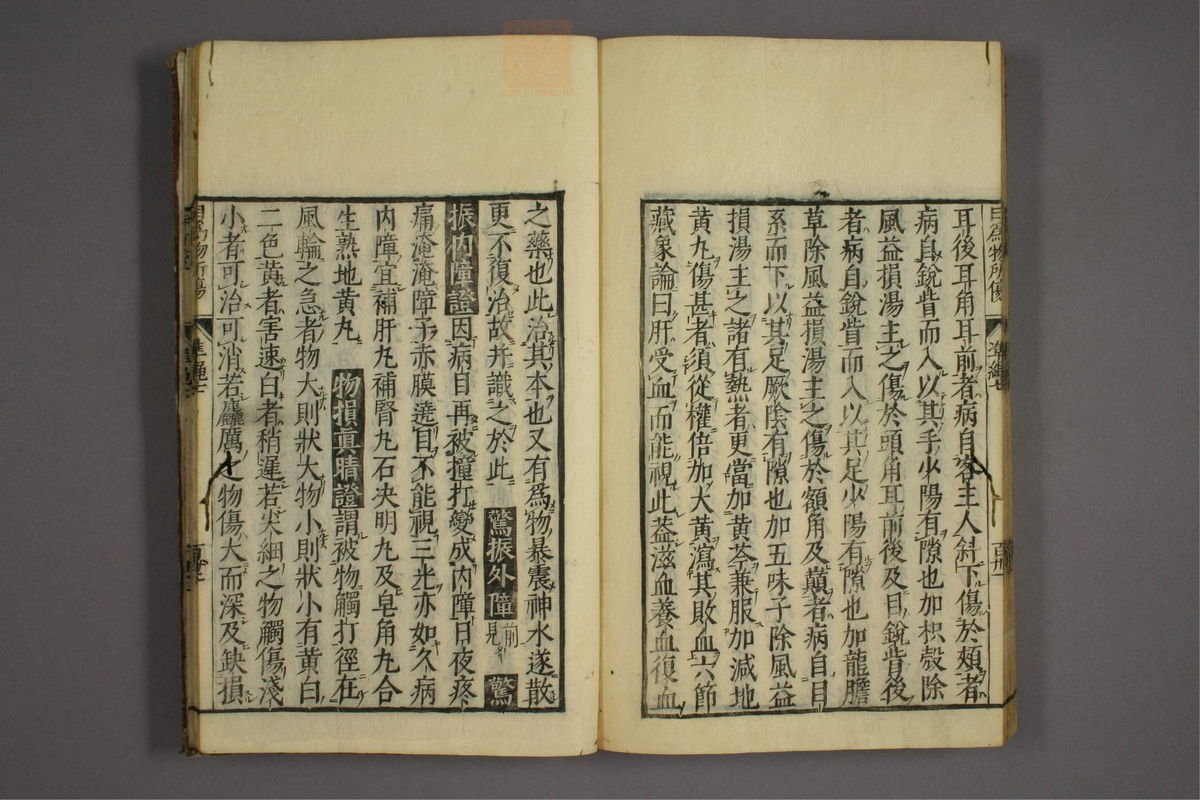 耳後耳角耳前者病自客主人斜下傷於頰者
病自銳眥而入以其手少陽有隙也加枳殼除
風益損湯主之傷於頭角耳前後及目銳眥後
者病自銳眥而入以其足少陽有隙也加龍膽
草除風益損湯主之傷於額角及巔者病自目
系而下以其足厥陰有隙也加五味子除風益
損湯主之諸有熱者更當加黄芩兼服加減地
黄丸傷甚者須從權倍加大黄瀉其敗血六節
藏象論曰肝受血而能視此蓋滋血養血復血
之藥也此治其本也又有為物暴震神水遂散
更不復治故并識之於此 驚振外障 見前 驚
振內障證因病目再被撞打變成內障日夜疼
痛淹淹障子赤膜遶目不能視三光亦如久病
內障宜補肝丸補腎丸石决明丸及皂角丸合
生熟地黄丸 物損真睛證謂被物觸打徑在
風輪之急者物大則狀大物小則狀小有黄白
二色黄者害速白者稍遲若尖細之物觸傷淺
小者可治可消若麤厲之物傷大而深及缺損
目為物所傷
準繩七